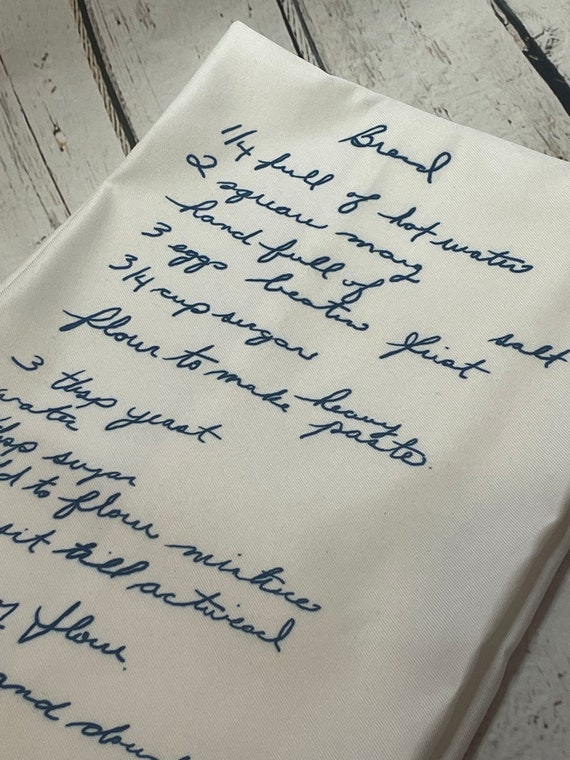 Bread
1/4 full of hot water
2 square marg
hand full of salt
3 eggs beaten first
3/4 cup sugar
flour to make heavy paste.
3 tbsp yeast
water
tbsp sugar
to flour mixture
sit till activied
flour.
and